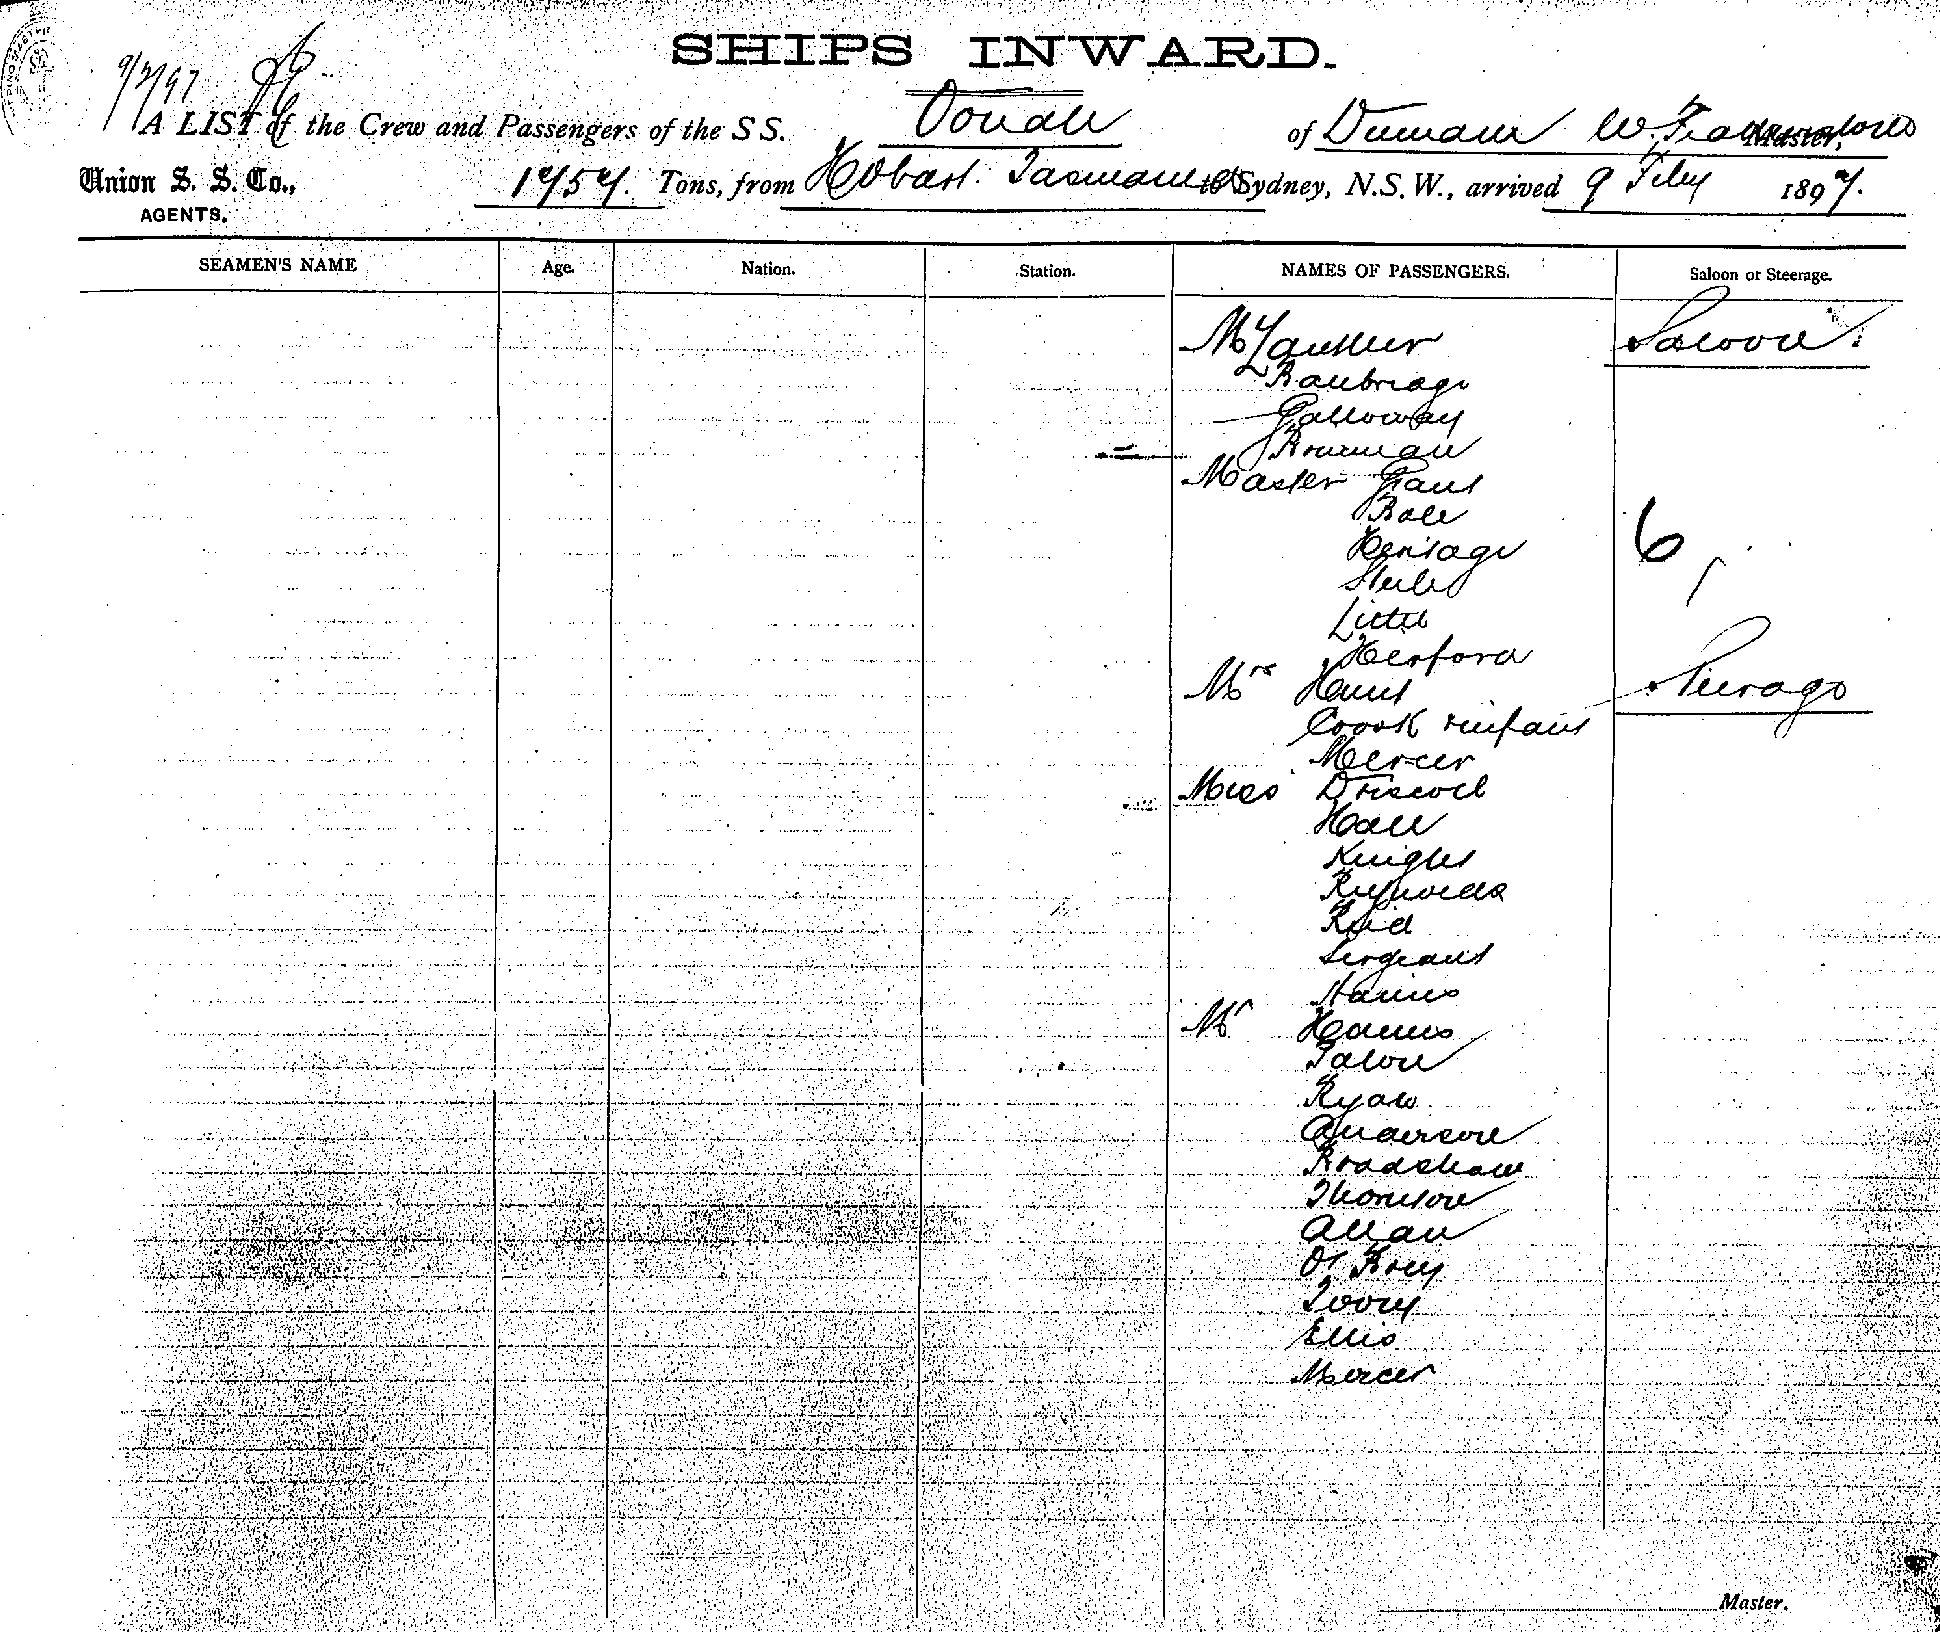 SHIPS INWARD.
9/2/97
A LIST of the Crew and Passengers of the S S. Oonah of Dunedin W. Master,
Union S. S. Co., 1757. Tons, from Hobart. Tasmania to Sydney, N.S.W., arrived 9 Feby 1897.
AGENTS.
SEAMEN'S NAME Age. Nation. Station. NAMES OF PASSENGERS. Saloon or Steerage.
Mr Saloon
Galloway
Bowman
Master Grant
Bale
Heritage
Steele
Little 6
Hertford
Mrs Hunt Steerage
Crook & infant
Mercer
Miss Driscoll
Hall
Knight
Reynolds
Reid
Sergeant
Mr
Ryan
Anderson
Bradshaw
Allan
Ivory
Ellis
Mercer
Master.